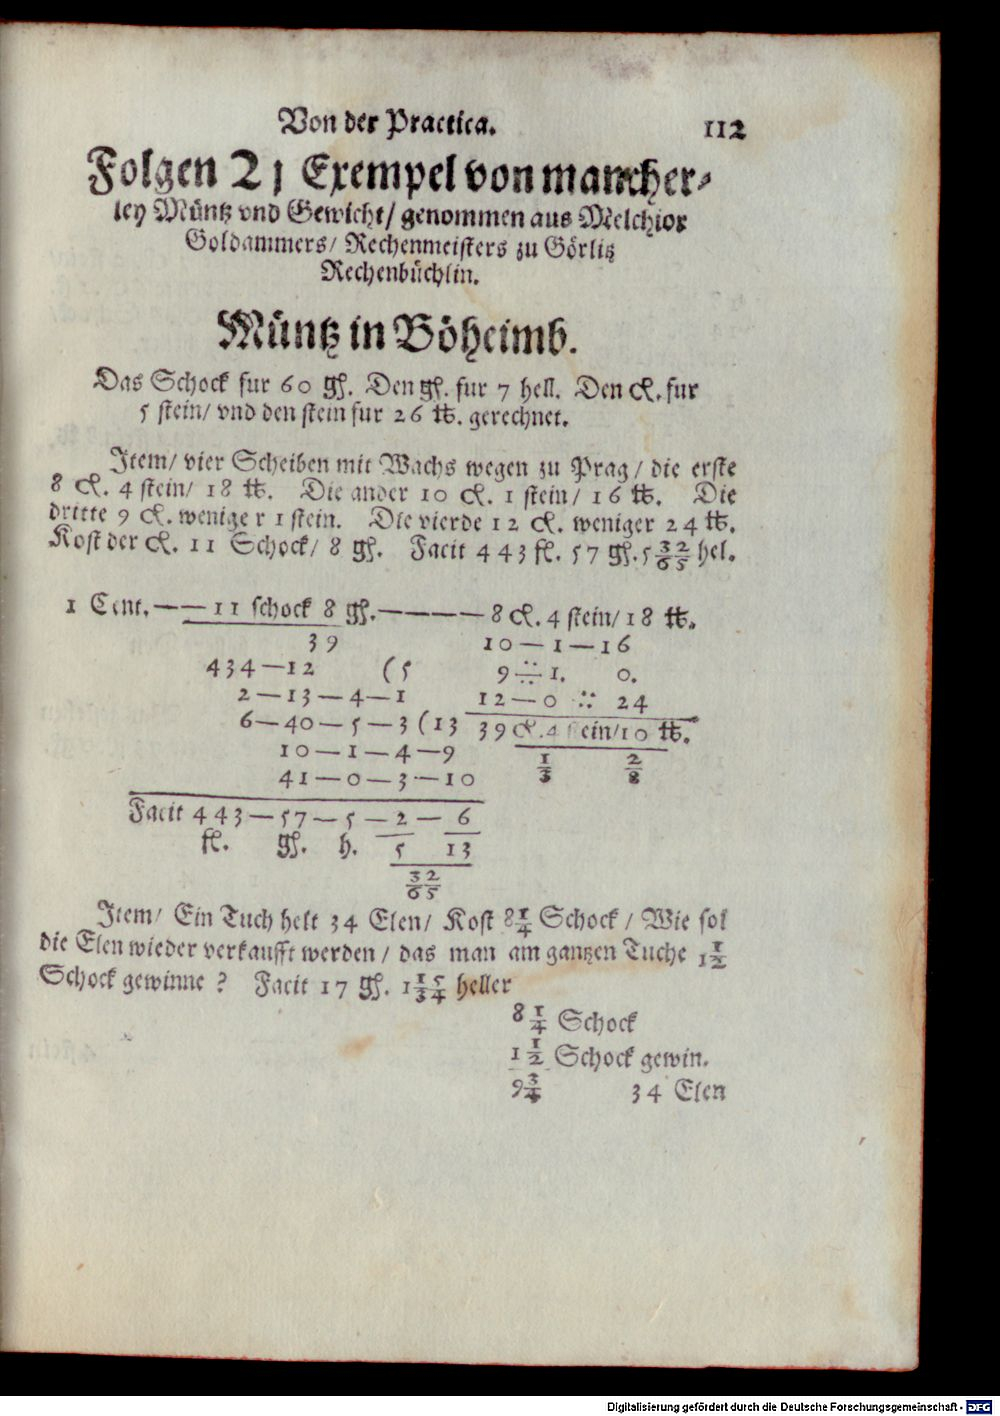 Von der Practica. 112
Folgen 21 Exempel von mancher⸗
ley Müntz vnd Gewicht/ genommen aus Melchior
Goldammers/ Rechenmeisters zu Görlitz
Rechenbüchlin.
Müntz in Böheimb.
Das Schock fur 60 gß. Den gß. fur 7 hell. Den cℓ. fur
5 stein/ vnd den stein fur 26 ℔. gerechnet.
Item/ vier Scheiben mit Wachs wegen zu Prag/ die erste
8 cℓ. 4 stein/ 18 ℔. Die ander 10 cℓ. 1 stein/ 16 ℔. Die
dritte 9 cℓ. weniger 1 stein. Die vierde 12 cℓ. weniger 24 ℔.
Kost der cℓ. 11 Schock/ 8 gß. Facit 443 fl. 57 gß. 5 32/65 hel.
1 Cent. —— 11 schock 8 gß. ———— 8 cℓ. 4 stein/ 18 ℔.
39 10 — 1 — 16
434 — 12 (5 9 ÷ 1. 0.
2 — 13 — 4 — 1 12 — 0 ÷ 24
6 — 40 — 5 — 3 (13 39 cℓ. 4 stein/ 10 ℔.
10 — 1 — 4 — 9 1/3 2/8
41 — 0 — 3 — 10
Facit 443 — 57 — 5 — 2 — 6
fl. gß. h. 5 13
32/65
Item/ Ein Tuch helt 34 Elen/ Kost 8 1/4 Schock/ Wie sol
die Elen wieder verkaufft werden/ das man am gantzen Tuche 1 1/2
Schock gewinne? Facit 17 gß. 1 15/34 heller
8 1/4 Schock
1 1/2 Schock gewin.
9 3/4 34 Elen
Digitalisierung gefördert durch die Deutsche Forschungsgemeinschaft - DFG